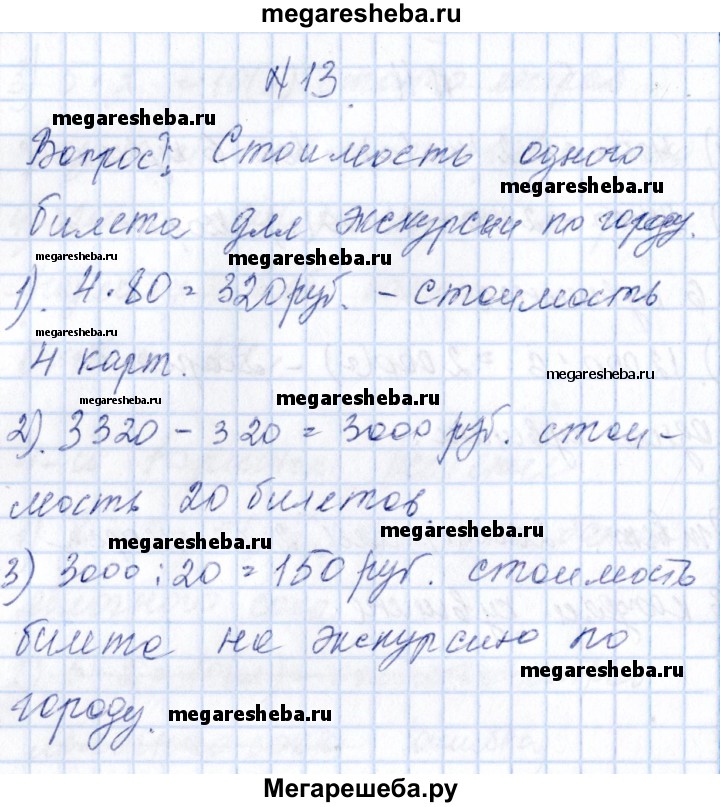 megaresheba.ru
N 13.
megaresheba.ru
Вопрос? Стоимость одного
megaresheba.ru
билета для экскурсии по городу.
megaresheba.ru megaresheba.ru
1). 4 · 80 = 320 руб. – стоимость
megaresheba.ru
4 карт.
megaresheba.ru
megaresheba.ru megaresheba.ru
2). 3320 – 320 = 3000 руб. стои-
мость 20 билетов.
megaresheba.ru
megaresheba.ru
3) 3000 : 20 = 150 руб. стоимость
билета на экскурсию по
megaresheba.ru
городу.
megaresheba.ru
Мегарешеба.ру